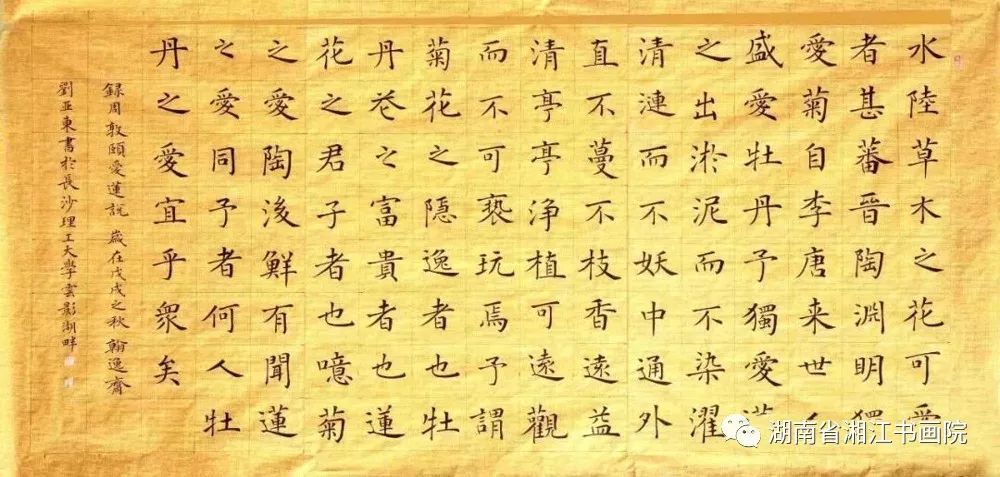 水陸草木之花可愛
者甚蕃晉陶淵明獨
愛菊自李唐来世人
盛愛牡丹予獨愛蓮
之出淤泥而不染濯
清漣而不妖中通外
直不蔓不枝香遠益
清亭亭浄植可遠觀
而不可亵玩焉予謂
菊花之隱逸者也牡
丹花之富貴者也蓮
花之君子者也噫菊
之愛陶後鮮有聞蓮
之愛同予者何人牡
丹之愛宜乎衆矣
録周敦頤愛蓮説 歲在戊戌之秋 翰逸齋
劉亚東書於長沙理工大學雲影湖畔
湖南省湘江书画院